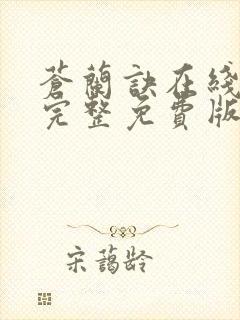 蒼蘭訣在綫
完整免費版
宋蔼龄